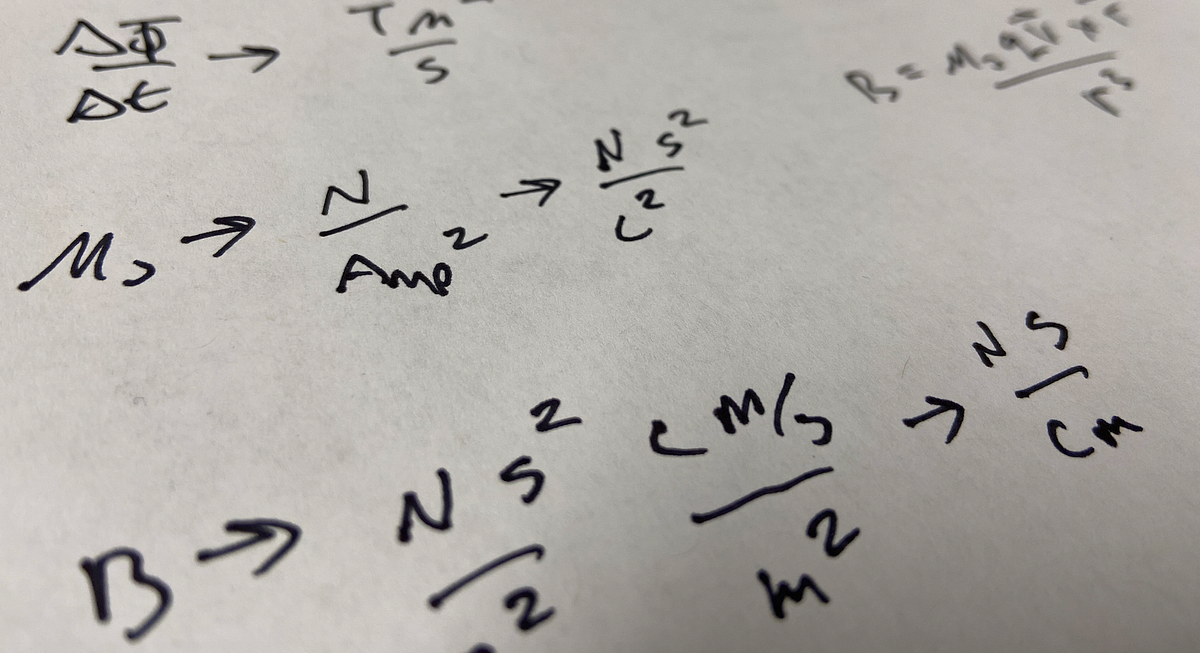 ΔΦ/Δt → T m²/s
B = μ₀ q v⃗ × r⃗ / r³
μ₀ → N/Amp² → N s²/C²
B → N s²/C² C m/s / m² → N s/C m